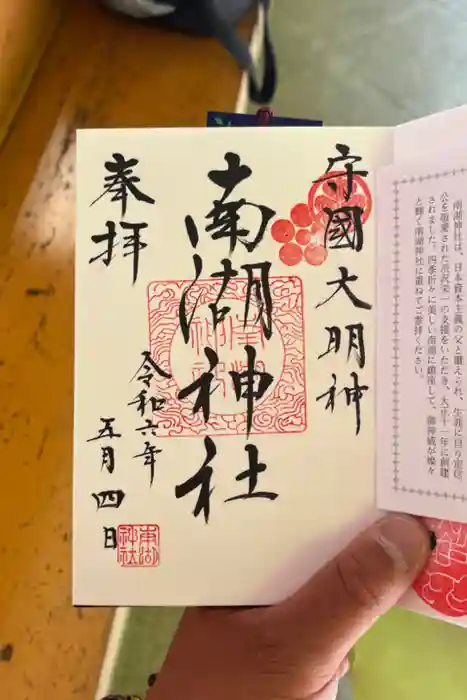 守國大明神
南湖神社
奉拝
令和六年
五月四日
南湖
神社
南湖神社は、日本資本主義の父と讃えられ、生涯に亘り定信
公を敬慕された渋沢栄一の支援をいただき、大正十一年に創建
されました。四季折々に美しい南湖に鎮座して、御神威が燦々
と輝く南湖神社に重ねてご参拝ください。